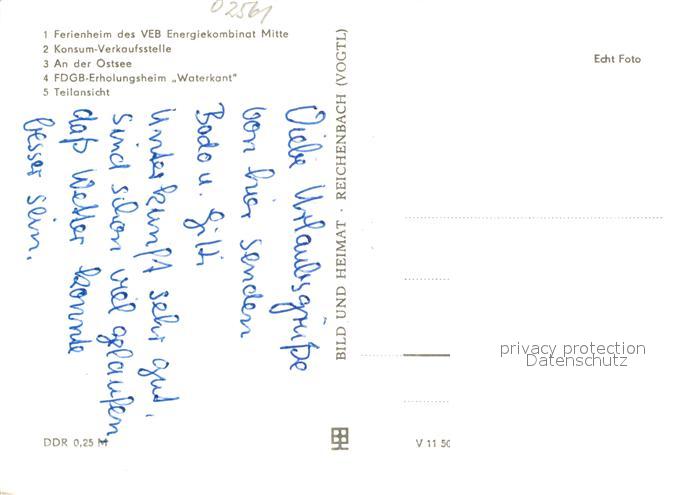 02561
1 Ferienheim des VEB Energiekombinat Mitte
2 Konsum-Verkaufsstelle
3 An der Ostsee
4 FDGB-Erholungsheim „Waterkant"
5 Teilansicht
Viele Urlaubsgrüße
von hier senden
Bodo u. Gitti
Unterkunft sehr gut.
Sind schon viel gelaufen
daß Wetter könnte
besser sein.
BILD UND HEIMAT · REICHENBACH (VOGTL)
Echt Foto
privacy protection
Datenschutz
DDR 0,25 M
V 11 50